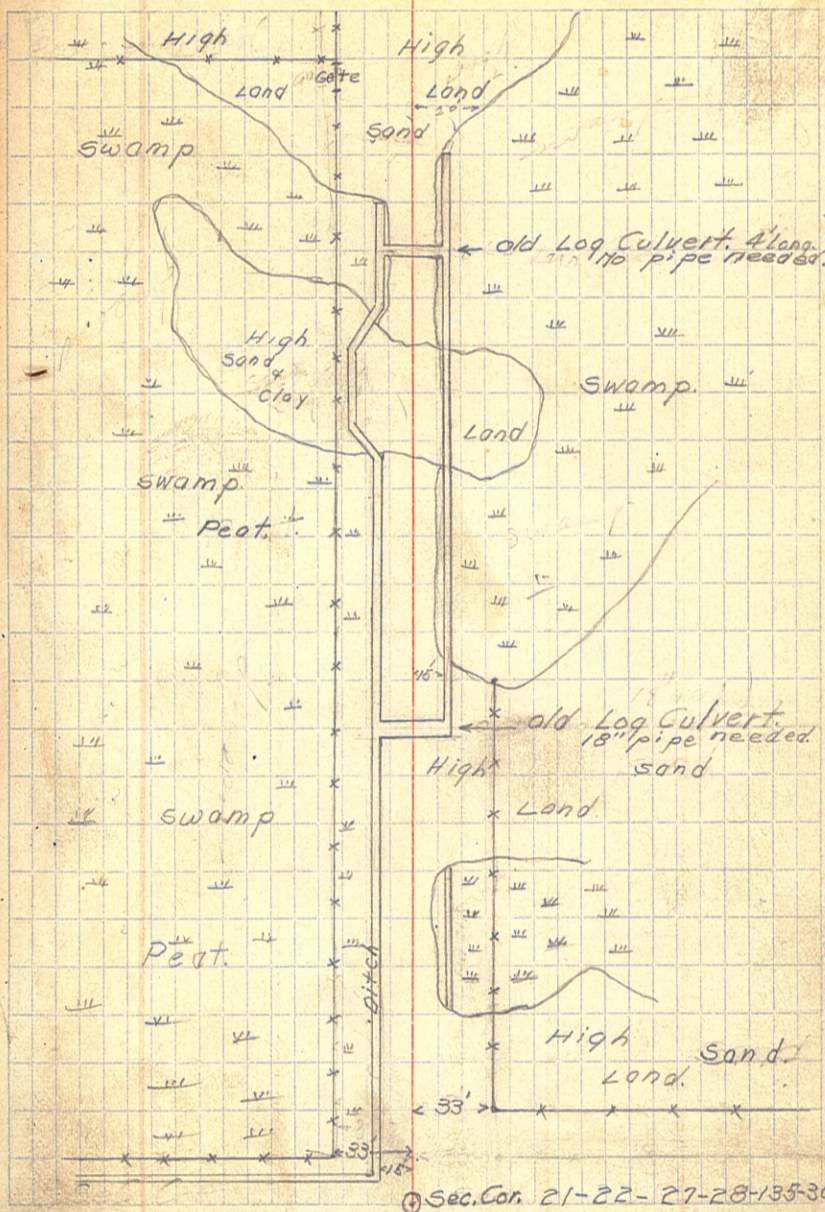 High
High
Gate
Land
Land
20'
Sand
Swamp
Old Log Culvert. 4' Long.
No pipe needed.
High
Sand
&
Clay
Swamp.
Land
Swamp.
Peat.
15'
Old Log Culvert.
18" pipe needed.
High
Sand
Land.
Swamp
Peat.
Ditch
High
Sand.
Land.
33'
33'
15'
Sec. Cor. 21-22-27-28-135-30